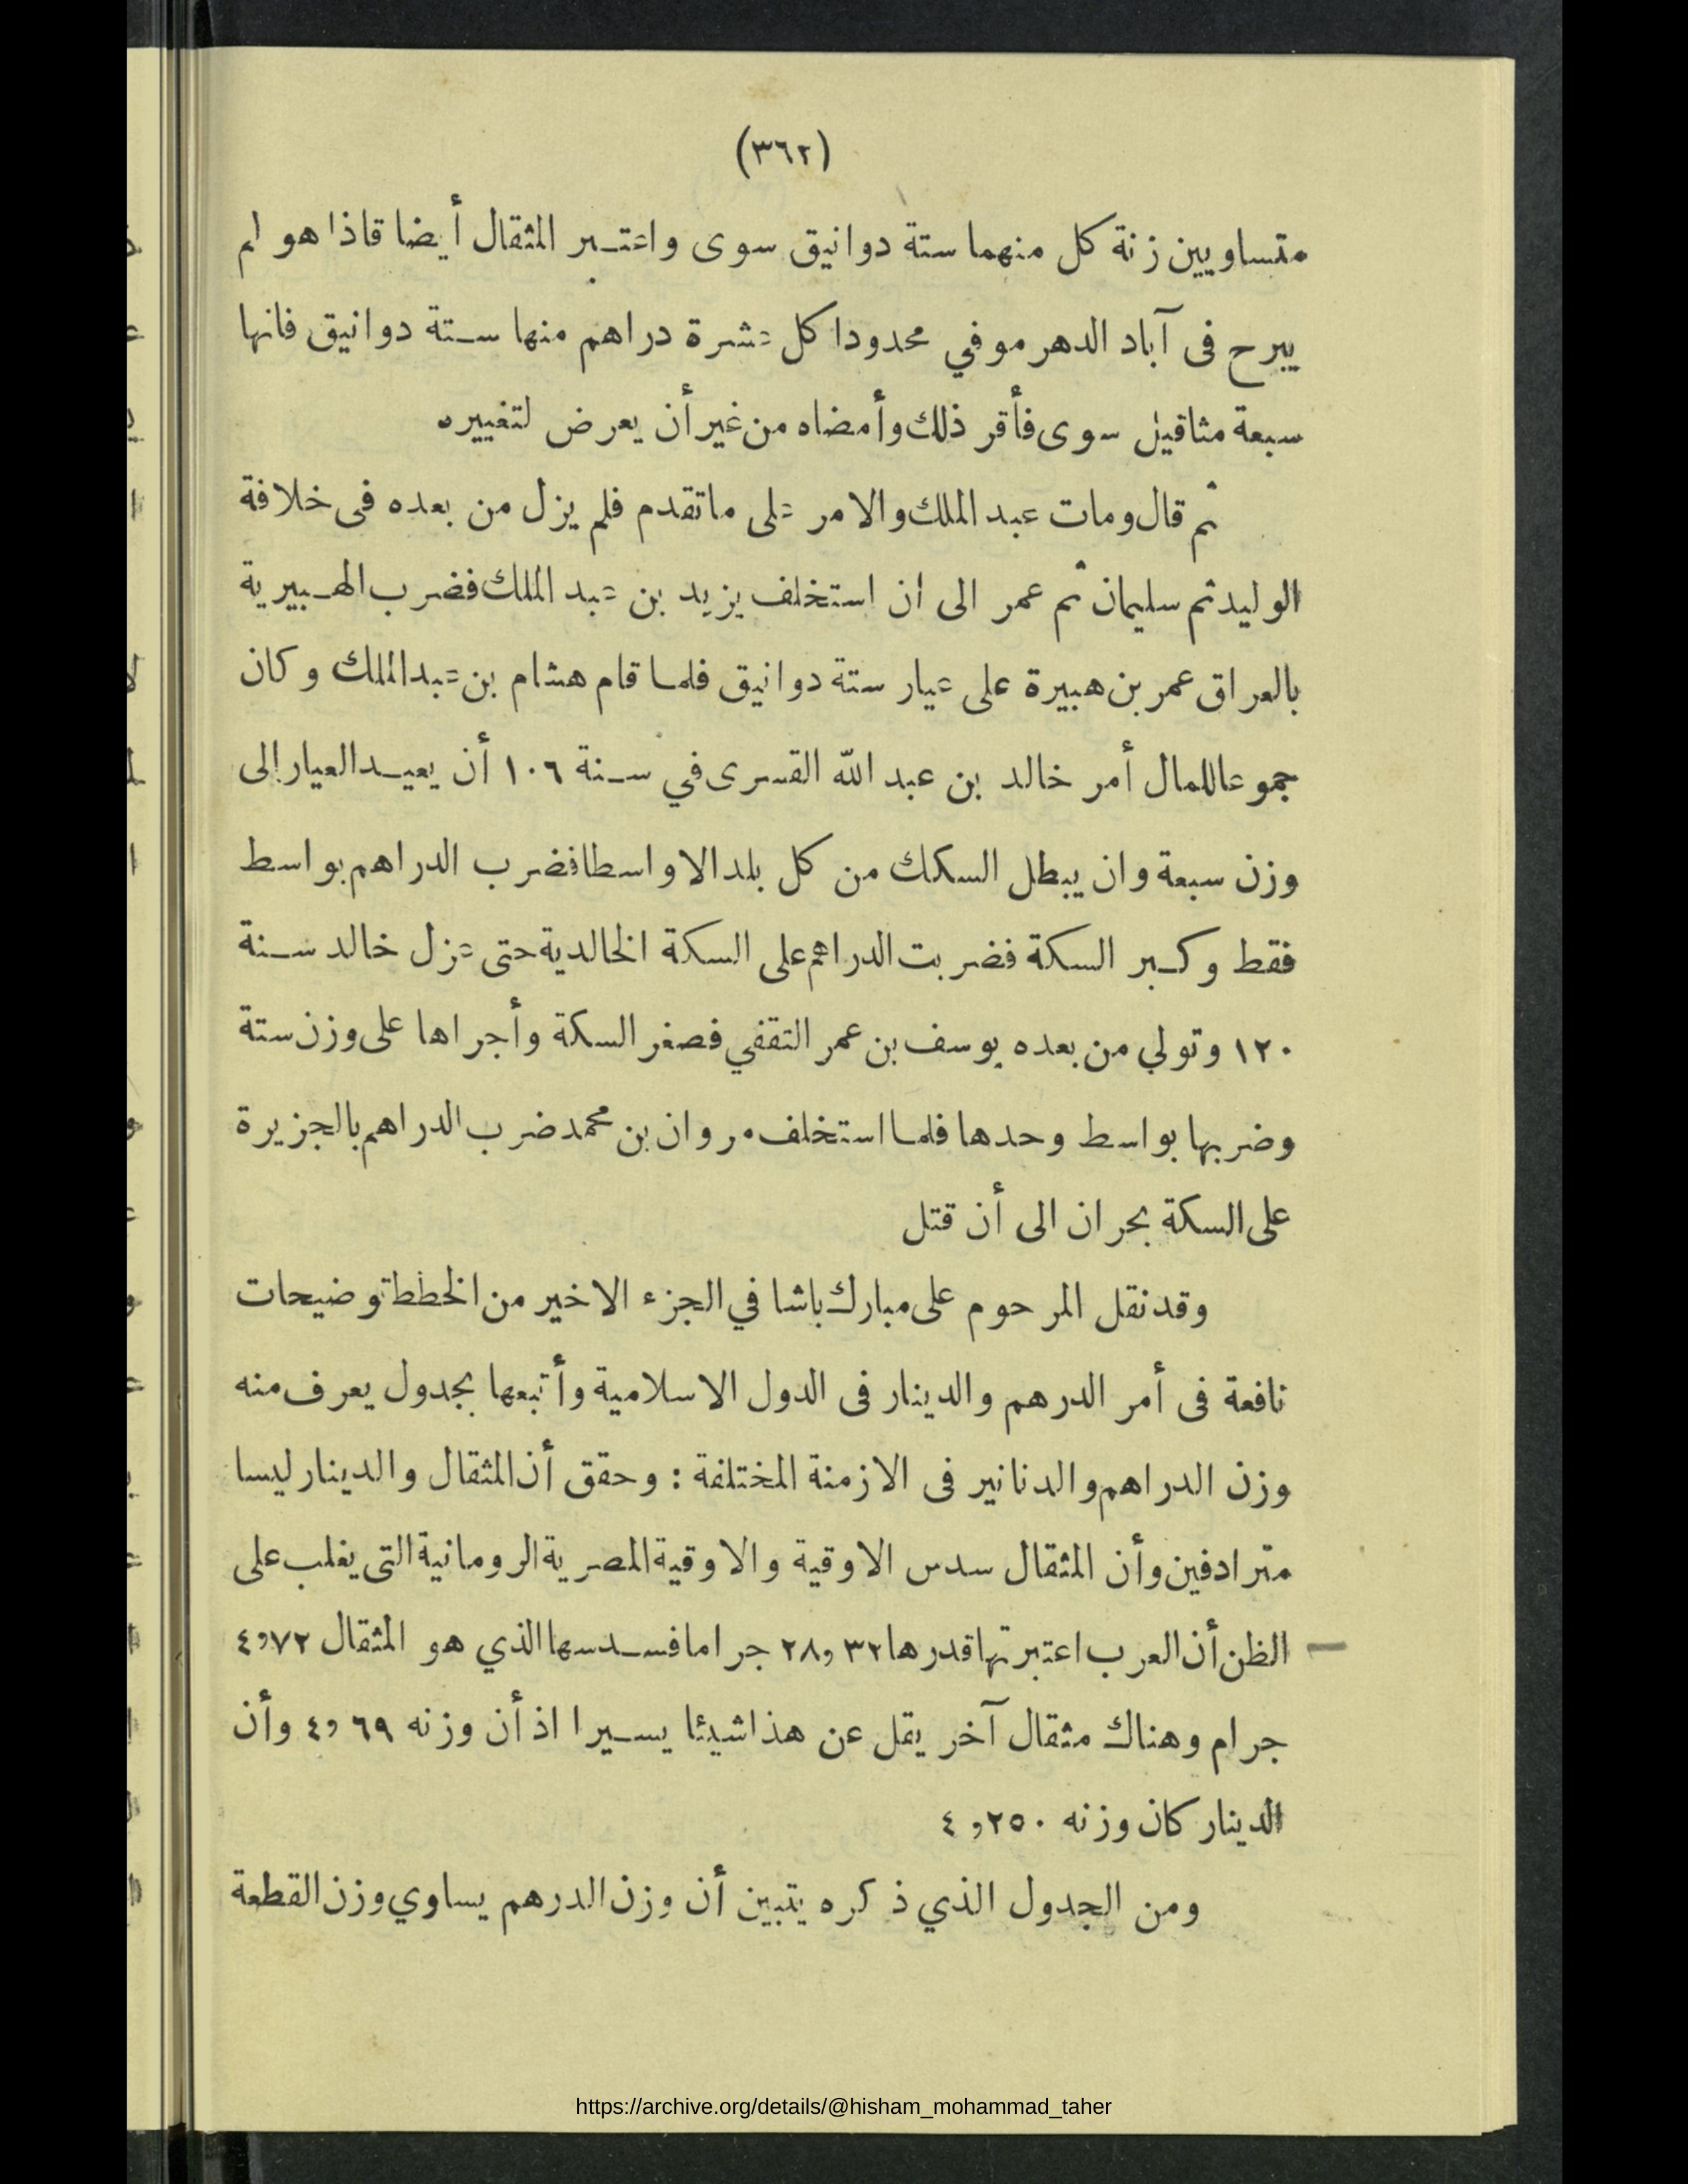 (٣٦٢)
متساويين زنة كل منهما ستة دوانيق سوى واعتبر المثقال أيضا قاذا هو لم
يبرح فى آباد الدهر موفي محدودا كل عشرة دراهم منها ستة دوانيق فانها
سبعة مثاقيل سوى فأقر ذلك وأمضاه من غير أن يعرض لتغييره
ثم قال ومات عبد الملك والامر على ما تقدم فلم يزل من بعده فى خلافة
الوليد ثم سليمان ثم عمر الى ان استخلف يزيد بن عبد الملك فضرب الهبيرية
بالعراق عمر بن هبيرة على عيار ستة دوانيق فلما قام هشام بن عبد الملك وكان
جموعا للمال أمر خالد بن عبد الله القسرى في سنة ١٠٦ أن يعيد العيار إلى
وزن سبعة وان يبطل السكك من كل بلد الا واسطا فضرب الدراهم بواسط
فقط وكبر السكة فضربت الدراهم على السكة الخالدية حتى عزل خالد سنة
١٢٠ وتولي من بعده يوسف بن عمر الثقفي فصغر السكة وأجراها على وزن ستة
وضربها بواسط وحدها فلما استخلف مروان بن محمد ضرب الدراهم بالجزيرة
على السكة بحران الى أن قتل
وقد نقل المرحوم على مبارك باشا في الجزء الاخير من الخطط توضيحات
نافعة فى أمر الدرهم والدينار فى الدول الاسلامية وأتبعها بجدول يعرف منه
وزن الدراهم والدنانير فى الازمنة المختلفة : وحقق أن المثقال والدينار ليسا
مترادفين وأن المثقال سدس الاوقية والاوقية المصرية الرومانية التى يغلب على
الظن أن العرب اعتبرتها قدرها ٢٨,٣٢ جراما فسدسها الذي هو المثقال ٤,٧٢
جرام وهناك مثقال آخر يقل عن هذا شيئا يسيرا اذ أن وزنه ٤,٦٩ وأن
الدينار كان وزنه ٤,٢٥٠
ومن الجدول الذي ذكره يتبين أن وزن الدرهم يساوي وزن القطعة
https://archive.org/details/@hisham_mohammad_taher